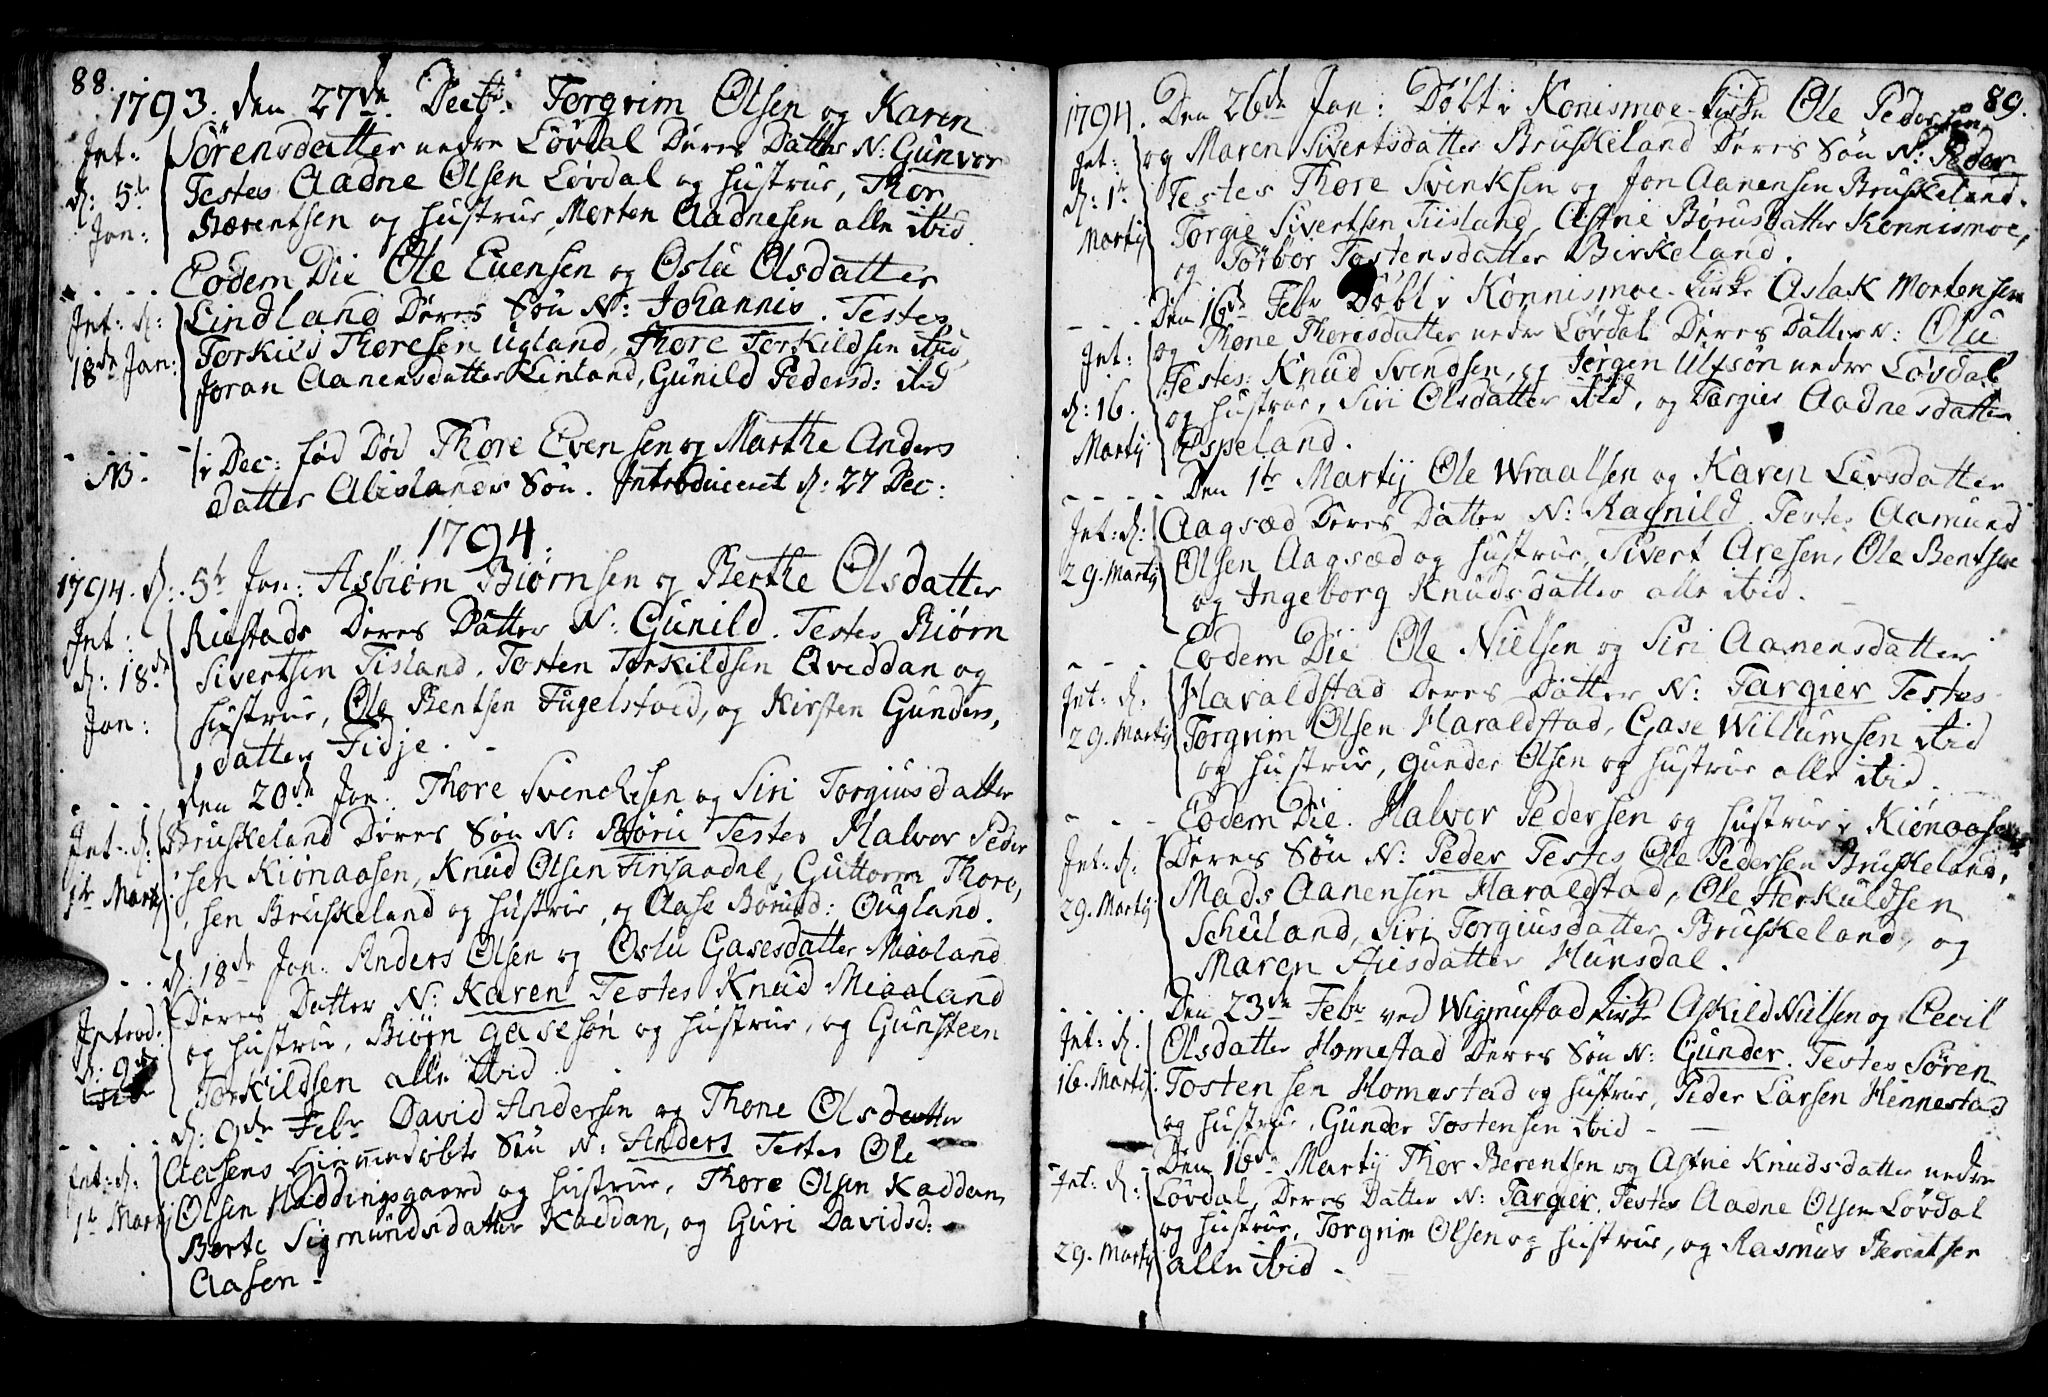 88.
1793. den 27de Decbr. Torgrim Olsen og Karen
Int: Sørensdatter nedre Løvdal Deres Datter N: Gunvor
d: 5te Testes Aadne Olsen Løvdal og hustrue, Thor
Jan: Berentsen og hustrue, Morten Aadnesen alle ibid.
Eodem Die Ole Evensen og Oslu Olsdatter
Int: d: Lindland Deres Søn N: Johannis. Testes
18de Jan: Torkild Thoresen Ugland, Thore Torkildsen ibid,
Joran Aanensdatter Linland, Gunild Pedersd: ibid
NB. i Dec: fød Død Thore Evensen og Marthe Anders
datter Abislands Søn. Introduceret d: 27 Dec:
1794.
1794. d: 5te Jan: Asbiørn Biørnsen og Berthe Olsdatter
Int: Riistads Deres Datter N: Gunild. Testes Biørn
d: 18de Sivertsen Tisland, Tosten Torkildsen Qveddan og
Jan: hustrue, Ole Bentsen Fugelstved, og Kirsten Gunders,
datter Fidje.
den 20de Jan: Thore Svenchsen og Siri Torgiusdatter
Int: d: Bruskeland Deres Søn N: Børu Testes Halvor Peder
1te Martij sen Kionaasen, Knud Olsen Finsaadal, Guttorm Thore,
sen Bruskeland og hustrue, og Aase Børusd: Ougland.
d: 18de Jan: Anders Olsen og Oslu Gasesdatter Miaaland
Introd: Deres Datter N: Karen Testes Knud Miaaland
d: 9de og hustrue, Biørn Gasesøn og hustrue, og Gunsteen
Torkildsen alle ibid.
d: 9de Febr David Andersen og Thone Olsdatter
Int: d: Aasens Hiemmedøbte Søn N: Anders Testes Ole
1te Martij Olsen Haddingsgaard og hustrue, Thore Olsen Kaddan,
Berte Sigmundsdatter Kaddan, og Guri Davidsd:
Aasen.
89.
1794. Den 26de Jan: Døbt i Konismoe Kirke Ole Pedersen
Int: og Maren Sivertsdatter Bruskeland Deres Søn N: Peder
d: 1te Testes Thore Svenksen og Jon Aanensen Bruskeland.
Martij Torgie Sivertsen Tiisland, Astrie Børusdatter Konnismoe,
og Torbor Tostensdatter Birkeland.
Den 16de Febr Døbt i Konnismoe Kirke Aslak Mortensen
Int: og Thone Thoresdatter nedre Løvdal Deres Datter N: Olu
Testes: Knud Svendsen, og Jørgen Ulfsøn nedre Løvdal
d: 16. og hustrue, Siri Olsdatter ibid, og Targier Aadnesdatter
Martij Espeland.
Den 1te Martij Ole Wraalsen og Karen Levsdatter
Int: d: Aagsæd Deres Datter N: Ragnild. Testes Aamund
29. Martij Olsen Aagsæd og hustrue, Sivert Aresen, Ole Bentsen
og Ingeborg Knudsdatter alle ibid.
Eodem Die Ole Nielsen og Siri Aanensdatter
Int: d. Haraldstad Deres Datter N: Targier Testes
29. Martij Torgrim Olsen Haraldstad, Gase Willumsen ibid
og hustrue, Gunder Olsen og hustrue alle ibid.
Eodem Die. Halvor Pedersen og hustrue i Kionaasen
Int: d. Deres Søn N: Peder Testes Ole Pedersen Bruskeland,
29. Martij Mads Aanensen Haraldstad, Ole Terkuldsen
Schuland, Siri Torgiusdatter Bruskeland, og
Maren Aiesdatter Hunsdal.
Den 23de Febr ved Wigmustad Kirke Askild Nielsen og Cecil
Int: d. Olsdatter Homestad Deres Søn N: Gunder. Testes Søren
16. Martij Tostensen Homestad og hustrue, Peder Larsen Hennestad
og hustrue, Gunder Tostensen ibid
Den 16de Martij Thor Berentsen og Astrie Knudsdatter nedre
Int: d: Løvdal, Deres Datter N: Targier. Testes Aadne Olsen Løvdal
og hustrue, Torgrim Olsen og hustrue, og Rasmus Berentsen
29. Martij alle ibid.